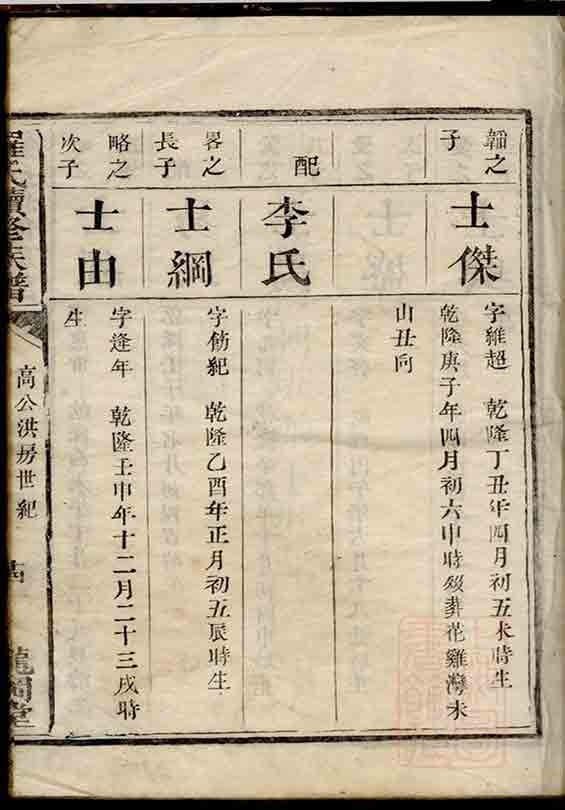 韜之
子
士傑
字維超 乾隆丁丑年四月初五未時生
乾隆庚子年四月初六申時歿葬花雞灣未
山丑向
配
李氏
畧之
長子
士綱
字飭紀 乾隆乙酉年正月初五辰時生
略之
次子
士由
字逢年 乾隆壬申年十二月二十三戌時
生
羅氏續修族譜
高公洪房世紀